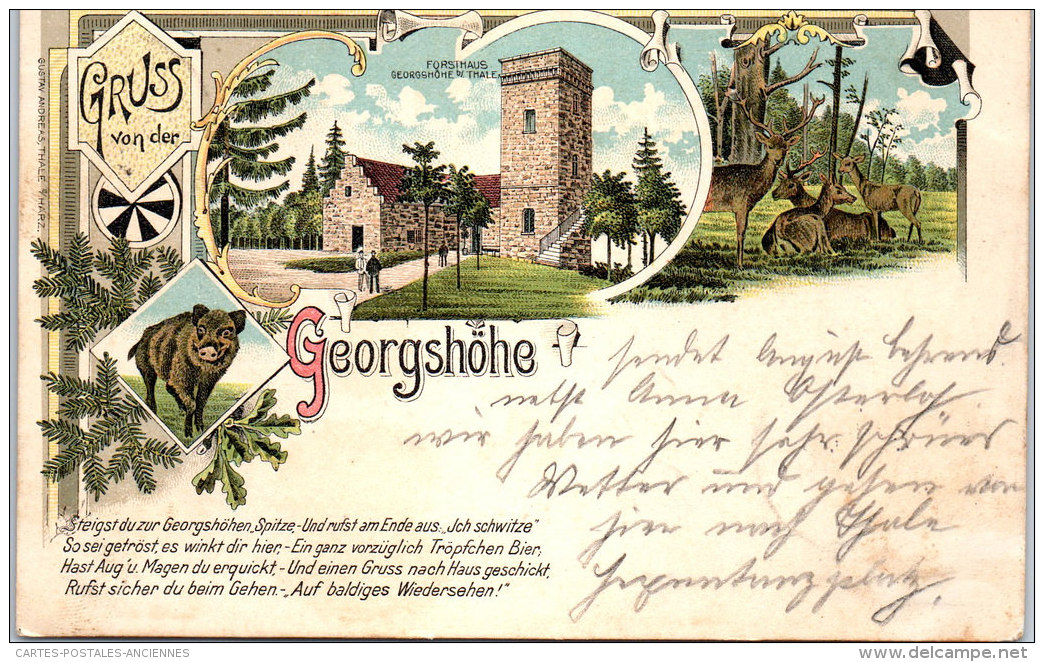 GRUSS
von der
GUSTAV ANDREAS, THALE a/HARZ.
FORSTHAUS
GEORGSHÖHE b/ THALE
Georgshöhe
sendet August Behrens
nebst Anna Osterloh.
wir haben hier sehr schönes
Wetter und gehen von
hier nach Thale
Hexentanzplatz.
Steigst du zur Georgshöhen Spitze,-Und rufst am Ende aus: „Ich schwitze"
So sei getröst, es winkt dir hier,-Ein ganz vorzüglich Tröpfchen Bier,
Hast Aug' u. Magen du erquickt,-Und einen Gruss nach Haus geschickt,
Rufst sicher du beim Gehen.-„Auf baldiges Wiedersehen!"
CARTES-POSTALES-ANCIENNES
www.delcampe.net